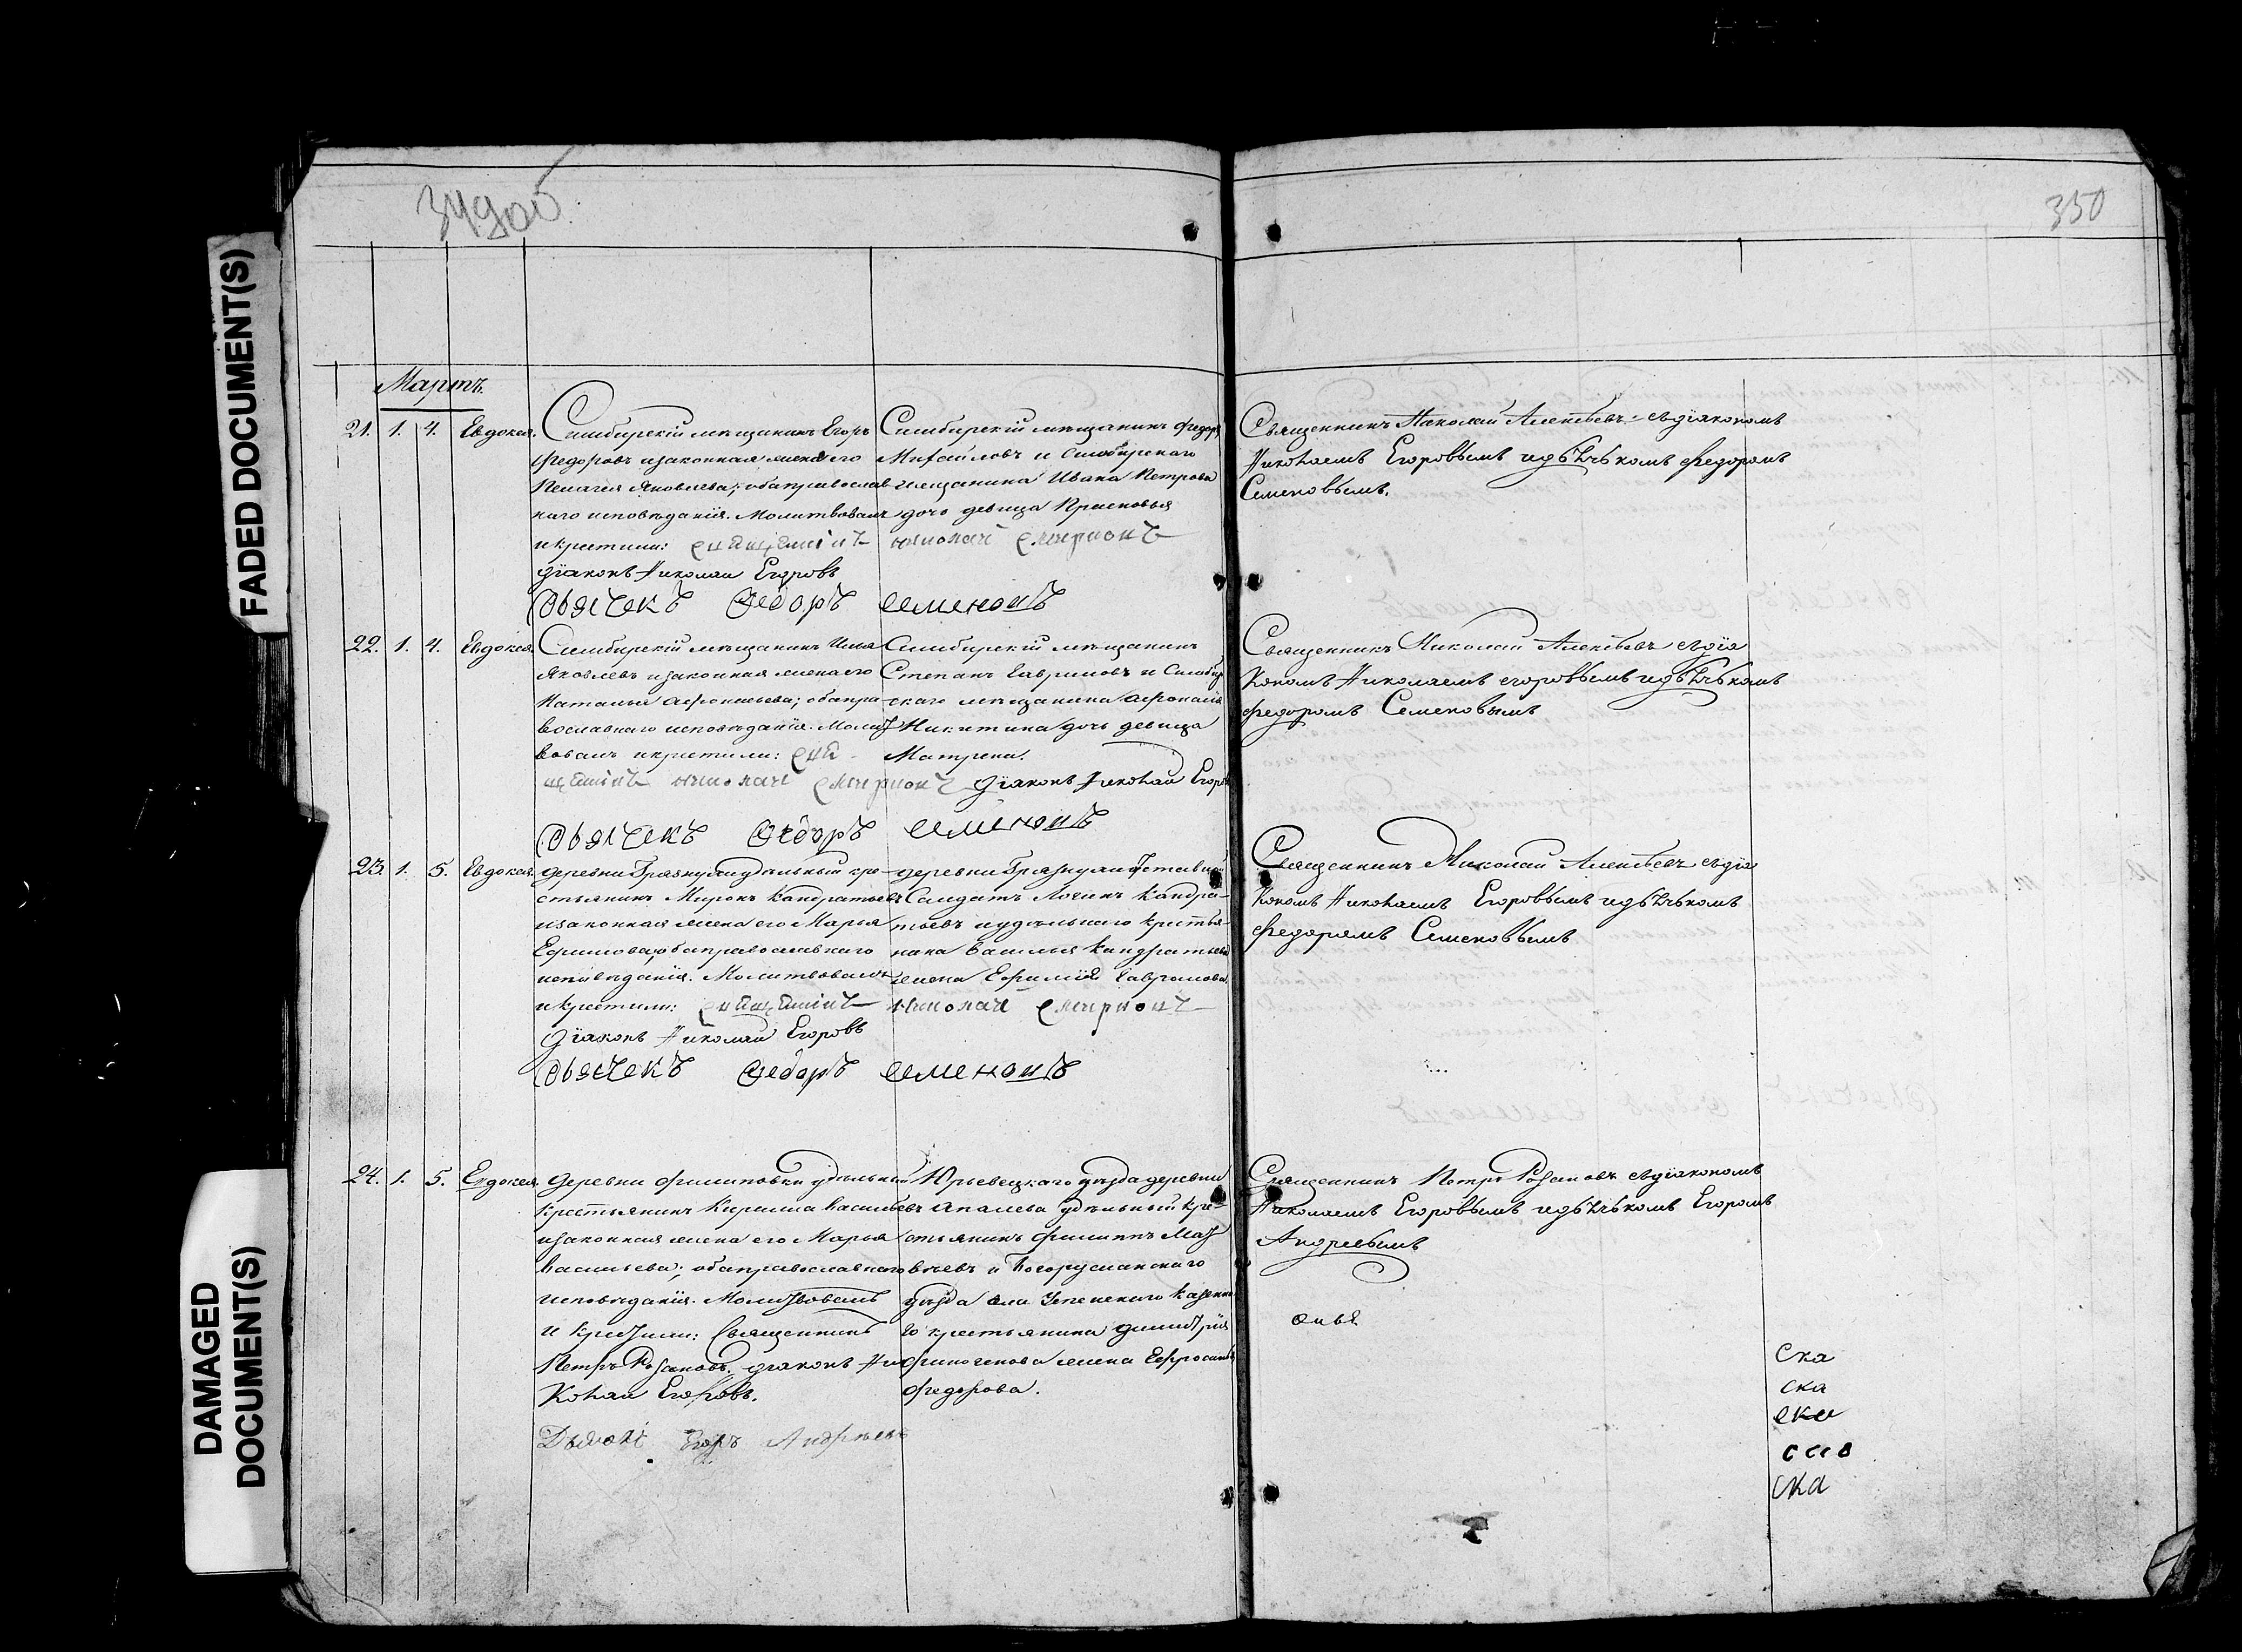 FADED DOCUMENT(S)
DAMAGED
DOCUMENT(S)
349об.
350
Мартъ.
21. 1. 4. Евдокея.
Симбирскій мѣщанинъ Егоръ
Федоровъ изаконная жена его
Пелагея Яковлева; оба православ-
наго исповѣданія. Молитвовалъ
икрестили: священникъ николай смирновъ
Діаконъ Николай Егоровъ
Дьячекъ Федоръ семеновъ
Симбирскій мѣщанинъ Федоръ
Михайловъ и Симбирскаго
мещанина Ивана Петрова
дочь девица Прасковья
Священникъ Николай Алексѣевъ съдіакономъ
Николаемъ Егоровымъ идьячькомъ Федоромъ
Семеновымъ.
22. 1. 4. Евдокея.
Симбирскій мѣщанинъ Илья
Яковлевъ изаконная жена его
Наталья Афонасьева; оба пра-
вославнаго исповѣданія. Молит
вовалъ икрестили: свя
щенникъ николай смирновъ Діаконъ Николай Егоровъ
Дьячекъ Федоръ семеновъ
Симбирскій мѣщанинъ
Степанъ Гавриловъ и Симбир
скаго мещанина Афонасія
Никитина дочь девица
Матрена.
Священникъ Николай Алексѣевъ съдіа
кономъ Николаемъ егоровымъ идьячькомъ
Федоромъ Семеновымъ
23. 1. 5. Евдокея.
деревни Грязнухи удѣльный кре-
стьянинъ Миронъ Кандратьевъ
изаконная жена его Марья
Ефимова, оба православнаго
исповѣданія. Молитвовалъ
икрестили: священникъ николай смирновъ
Діаконъ Николай Егоровъ
Дьячекъ Федоръ семеновъ
деревни Грязнухи отставной
Салдатъ Логинъ Кандра-
тьевъ иудѣльнаго крестья-
нина Василья Кандратьева
жена Ефимія Гаврилова
Священникъ Николай Алексѣевъ съдіа
кономъ Николаемъ Егоровымъ идьячькомъ
Федоромъ Семеновымъ
24. 1. 5. Евдокея.
деревни Филиповки удѣльный
крестьянинъ Кирилла Васильевъ
изаконная жена его Марья
Васильева; оба православнаго
исповѣданія. Молитвовалъ
и крестили: Священникъ
Петръ Розановъ. діаконъ Ни
колай Егоровъ.
Дьячекъ Егоръ Андреевъ
деревни
удѣльный кре-
стьянинъ Филиппъ Мат
вѣевъ и Богорусланскаго
уѣзда села Успенскаго казенна
го крестьянина Димитрія
жена Ефросинья
Федорова.
Священникъ Петръ Розановъ съдіакономъ
Николаемъ Егоровымъ идьячькомъ Егоромъ
Андреевымъ
ска
ска
ска
ска